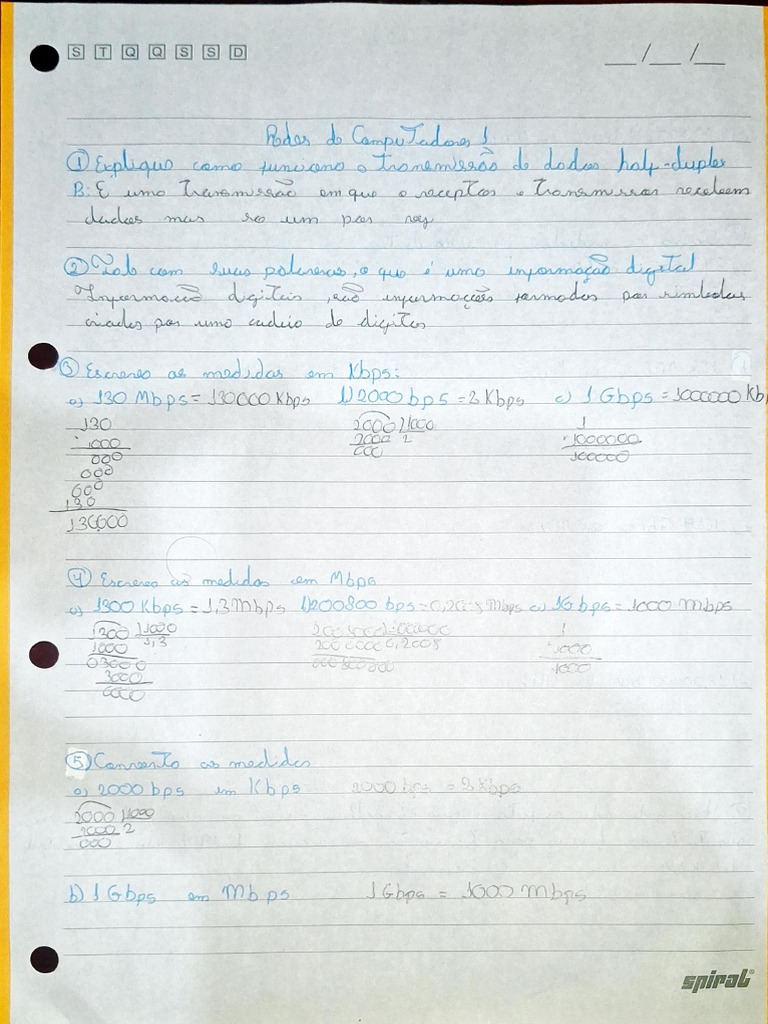 S T Q Q S S D
__/__/__
Redes de Computadores 1
① Explique como funciona a transmissão de dados half-duplex
R: É uma transmissão em que o receptor e transmissor recebem
dados mas so um por vez
② Fale com suas palavras, o que é uma informação digital
Informação digitais, são informações formadas por simbolos
criados por uma cadeia de digitos
③ Escreva as medidas em Kbps:
a) 130 Mbps = 130000 Kbps b) 2000 bps = 2 Kbps c) 1 Gbps = 1000000 Kb
130 2000 1000 1
1000 2000 2 1000000
000 000 100000
000
000
130
130000
④ Escreva as medidas em Mbps
a) 1300 Kbps = 1,3 Mbps b) 200800 bps = 0,2008 Mbps c) 1Gbps = 1000 Mbps
1300 1000 1
1000 1,3 0,2008 1000
03000 1000
3000
0000
⑤ Converta as medidas
a) 2000 bps em Kbps 2000 bps = 2 Kbps
2000 1000
2000 2
000
b) 1 Gbps em Mbps 1 Gbps = 1000 Mbps
spiral